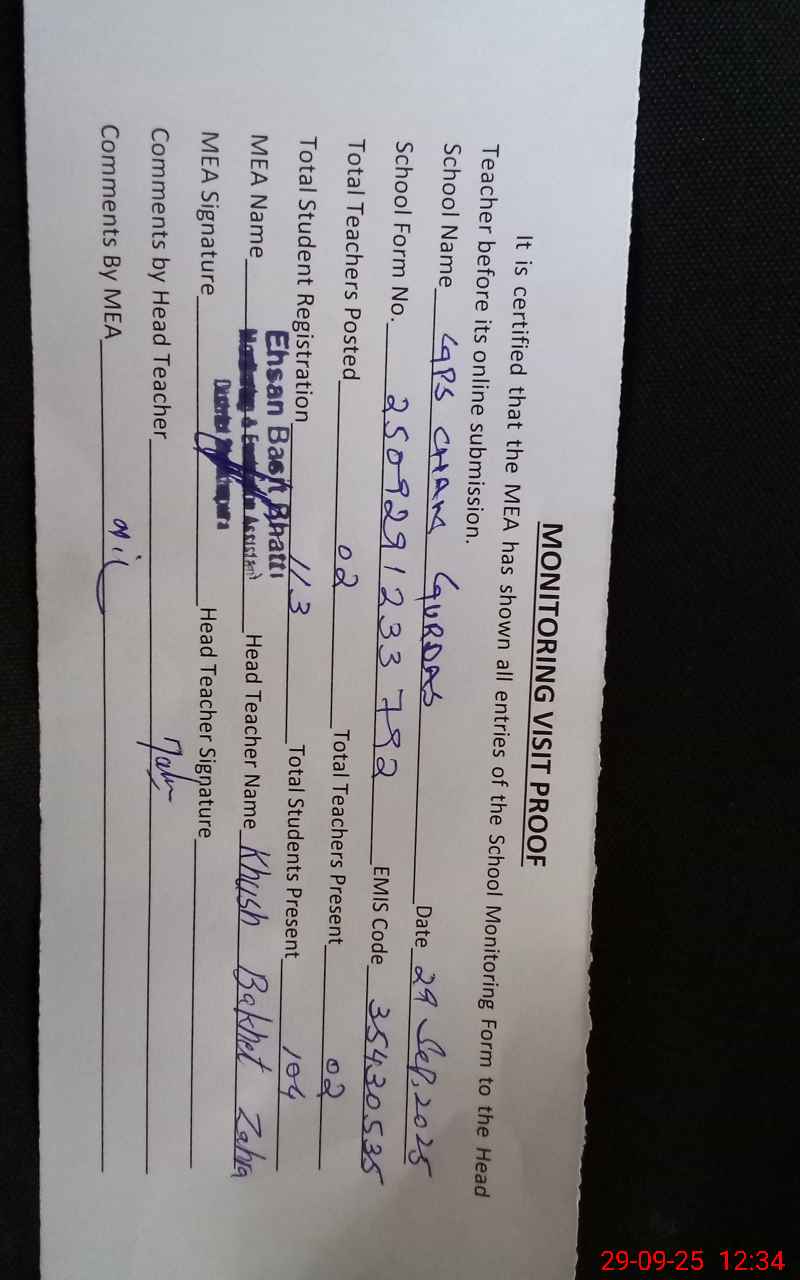 MONITORING VISIT PROOF
It is certified that the MEA has shown all entries of the School Monitoring Form to the Head
Teacher before its online submission.
School Name GPS CHAK GURDAS Date 29 Sep, 2025
School Form No. 2509291233792 EMIS Code 35430535
Total Teachers Posted 02 Total Teachers Present 02
Total Student Registration 113 Total Students Present 104
MEA Name Ehsan Basit Bhatti Head Teacher Name Khush Bakhet Zahra
Monitoring & Evaluation Assistant
District
MEA Signature Head Teacher Signature
Comments by Head Teacher
Comments By MEA Nil
29-09-25 12:34